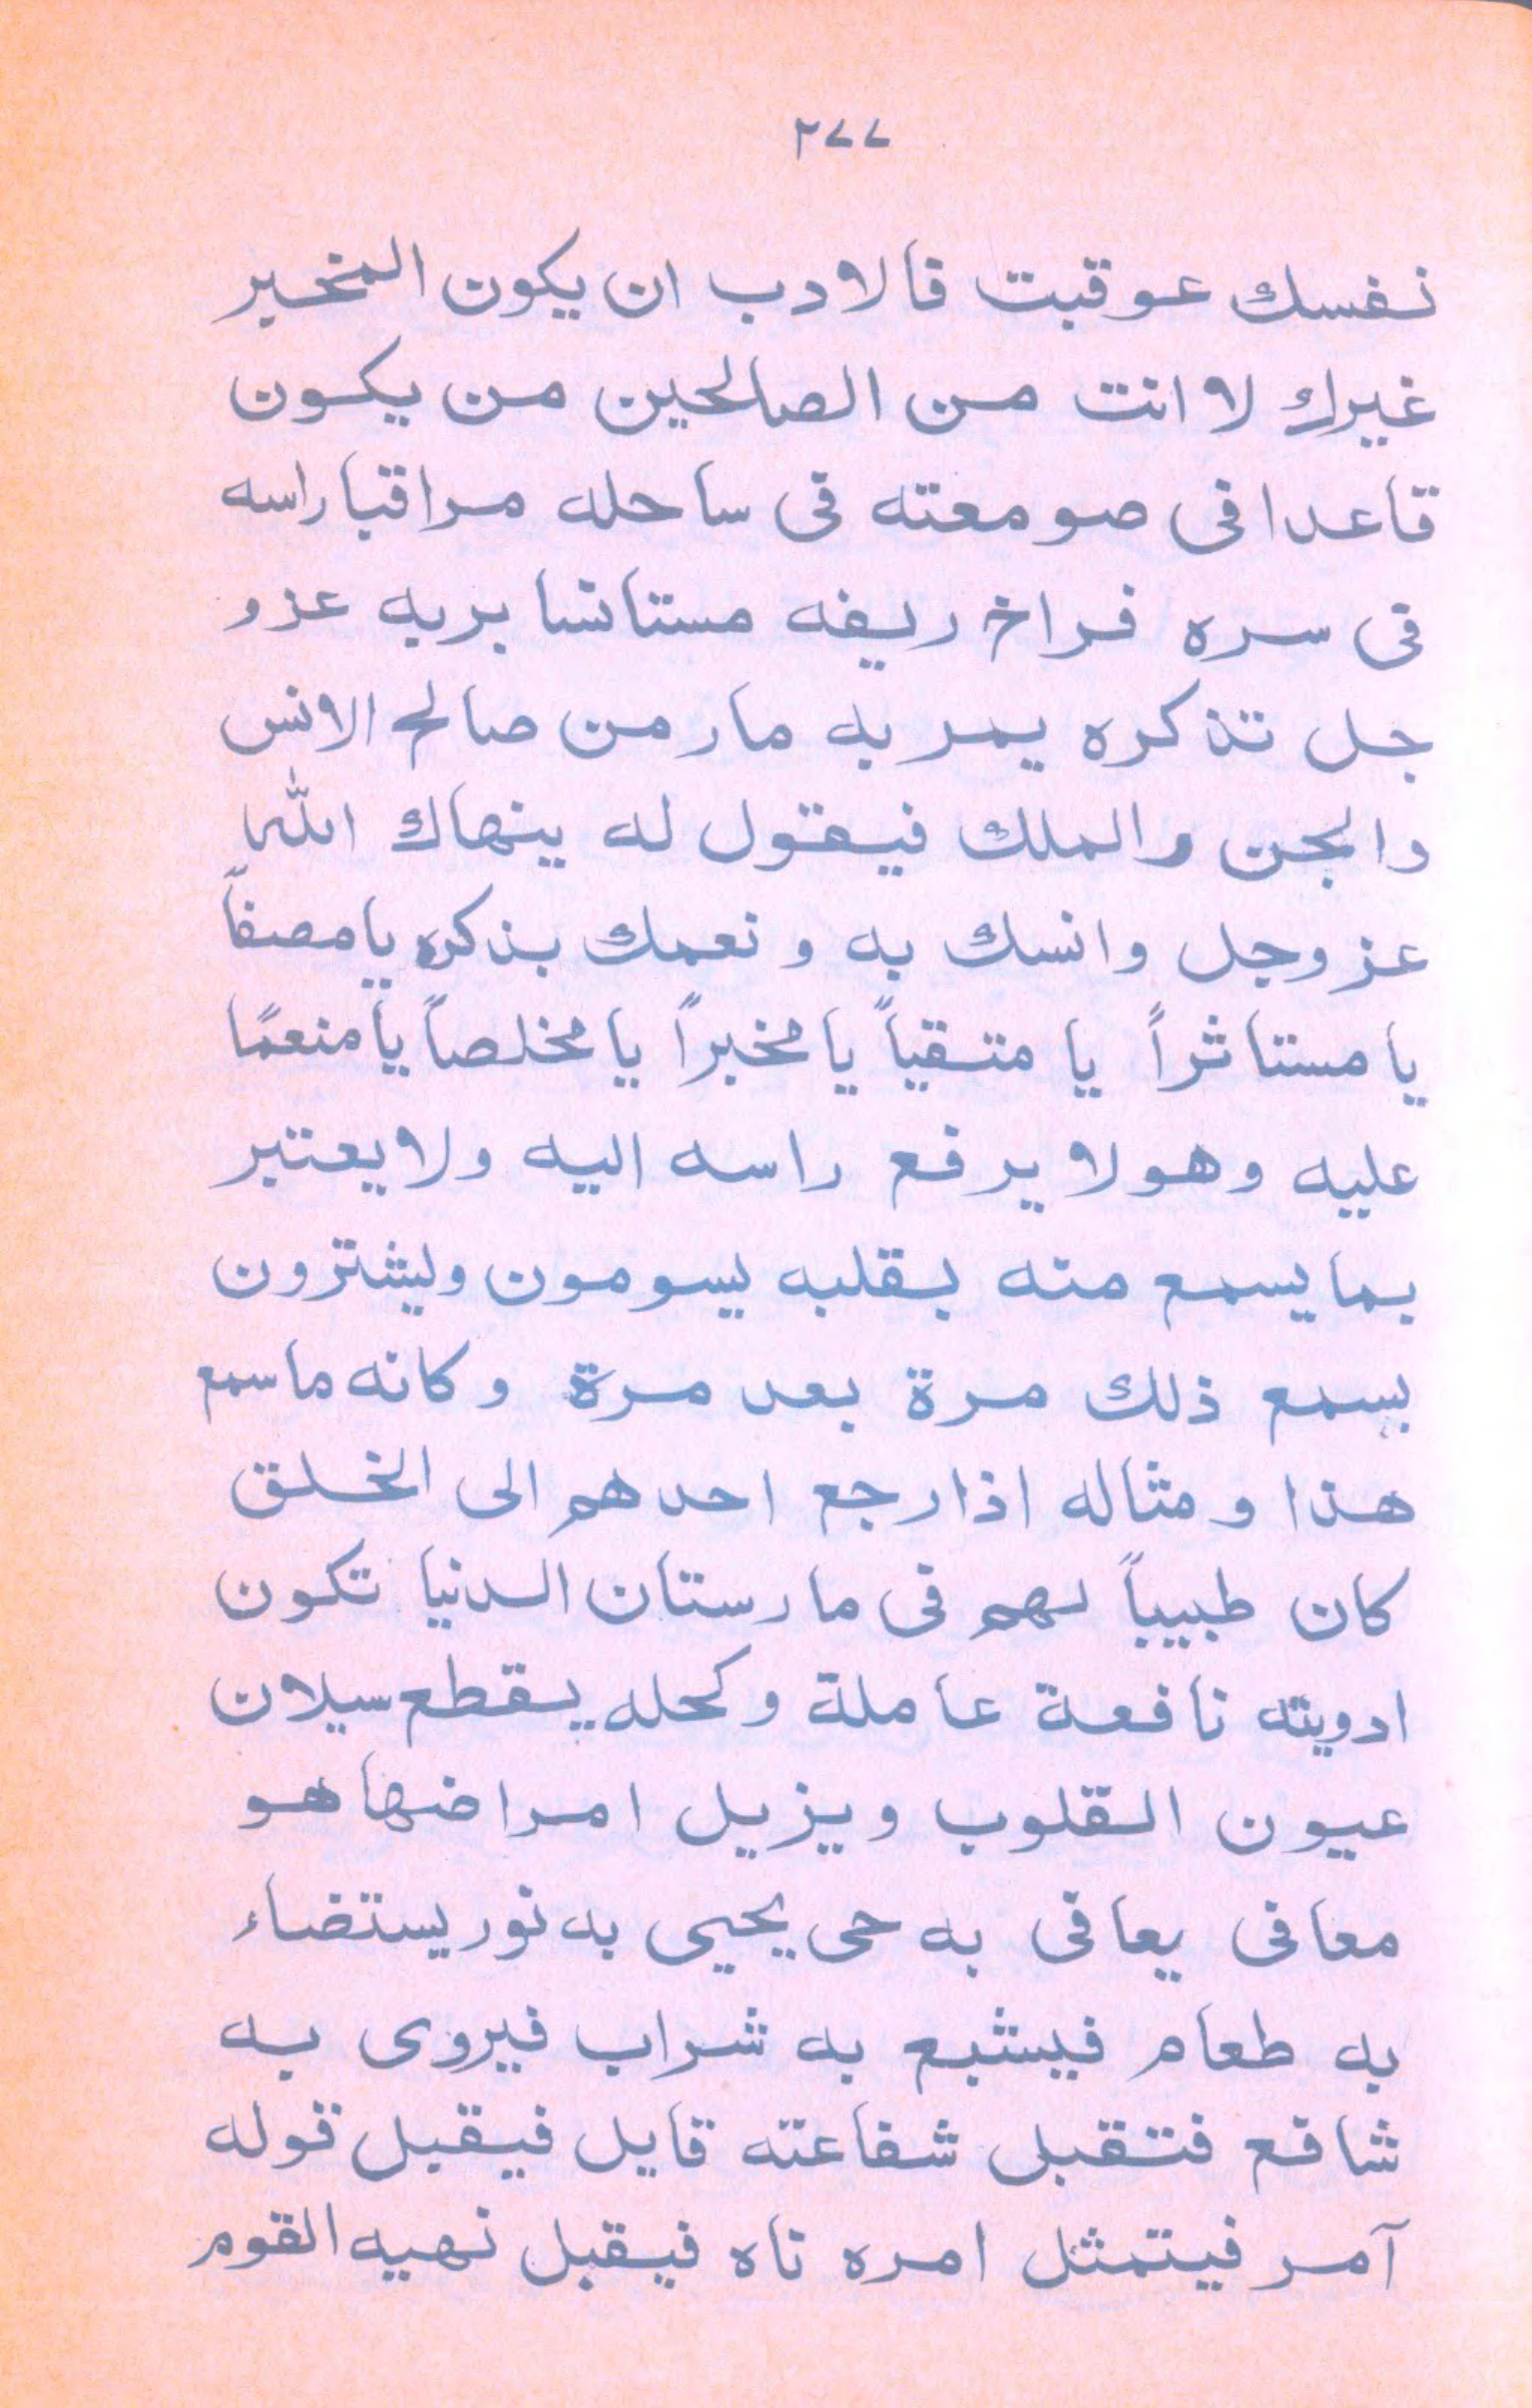 ٢٧٧
نفسك عوقبت فالادب ان يكون المخبر
غيرك لا انت من الصالحين من يكون
قاعدا فى صومعته فى ساحله مراقبا راسه
فى سره فراخ ريفه مستانسا بربه عز و
جل تذكره يمر به مار من صالح الانس
والجن والملك فيقول له ينهاك الله
عز وجل وانسك به ونعمك بذكره يا مصفاً
يا مستاثراً يا متقياً يا مخبراً يا مخلصاً يا منعمًا
عليه وهو لا يرفع راسه اليه ولا يعتبر
بما يسمع منه بقلبه يسومون ويشترون
بسمع ذلك مرة بعد مرة وكانه ما سمع
هذا ومثاله اذا رجع احدهم الى الخلق
كان طبيباً لهم فى مارستان الدنيا تكون
ادويته نافعة عاملة وكحله يقطع سيلان
عيون القلوب ويزيل امراضها هو
معافى يعافى به حى يحيى به نور يستضاء
به طعام فيشبع به شراب فيروى به
شافع فتقبل شفاعته قايل فيقبل قوله
آمر فيتمثل امره ناه فيقبل نهيه القوم